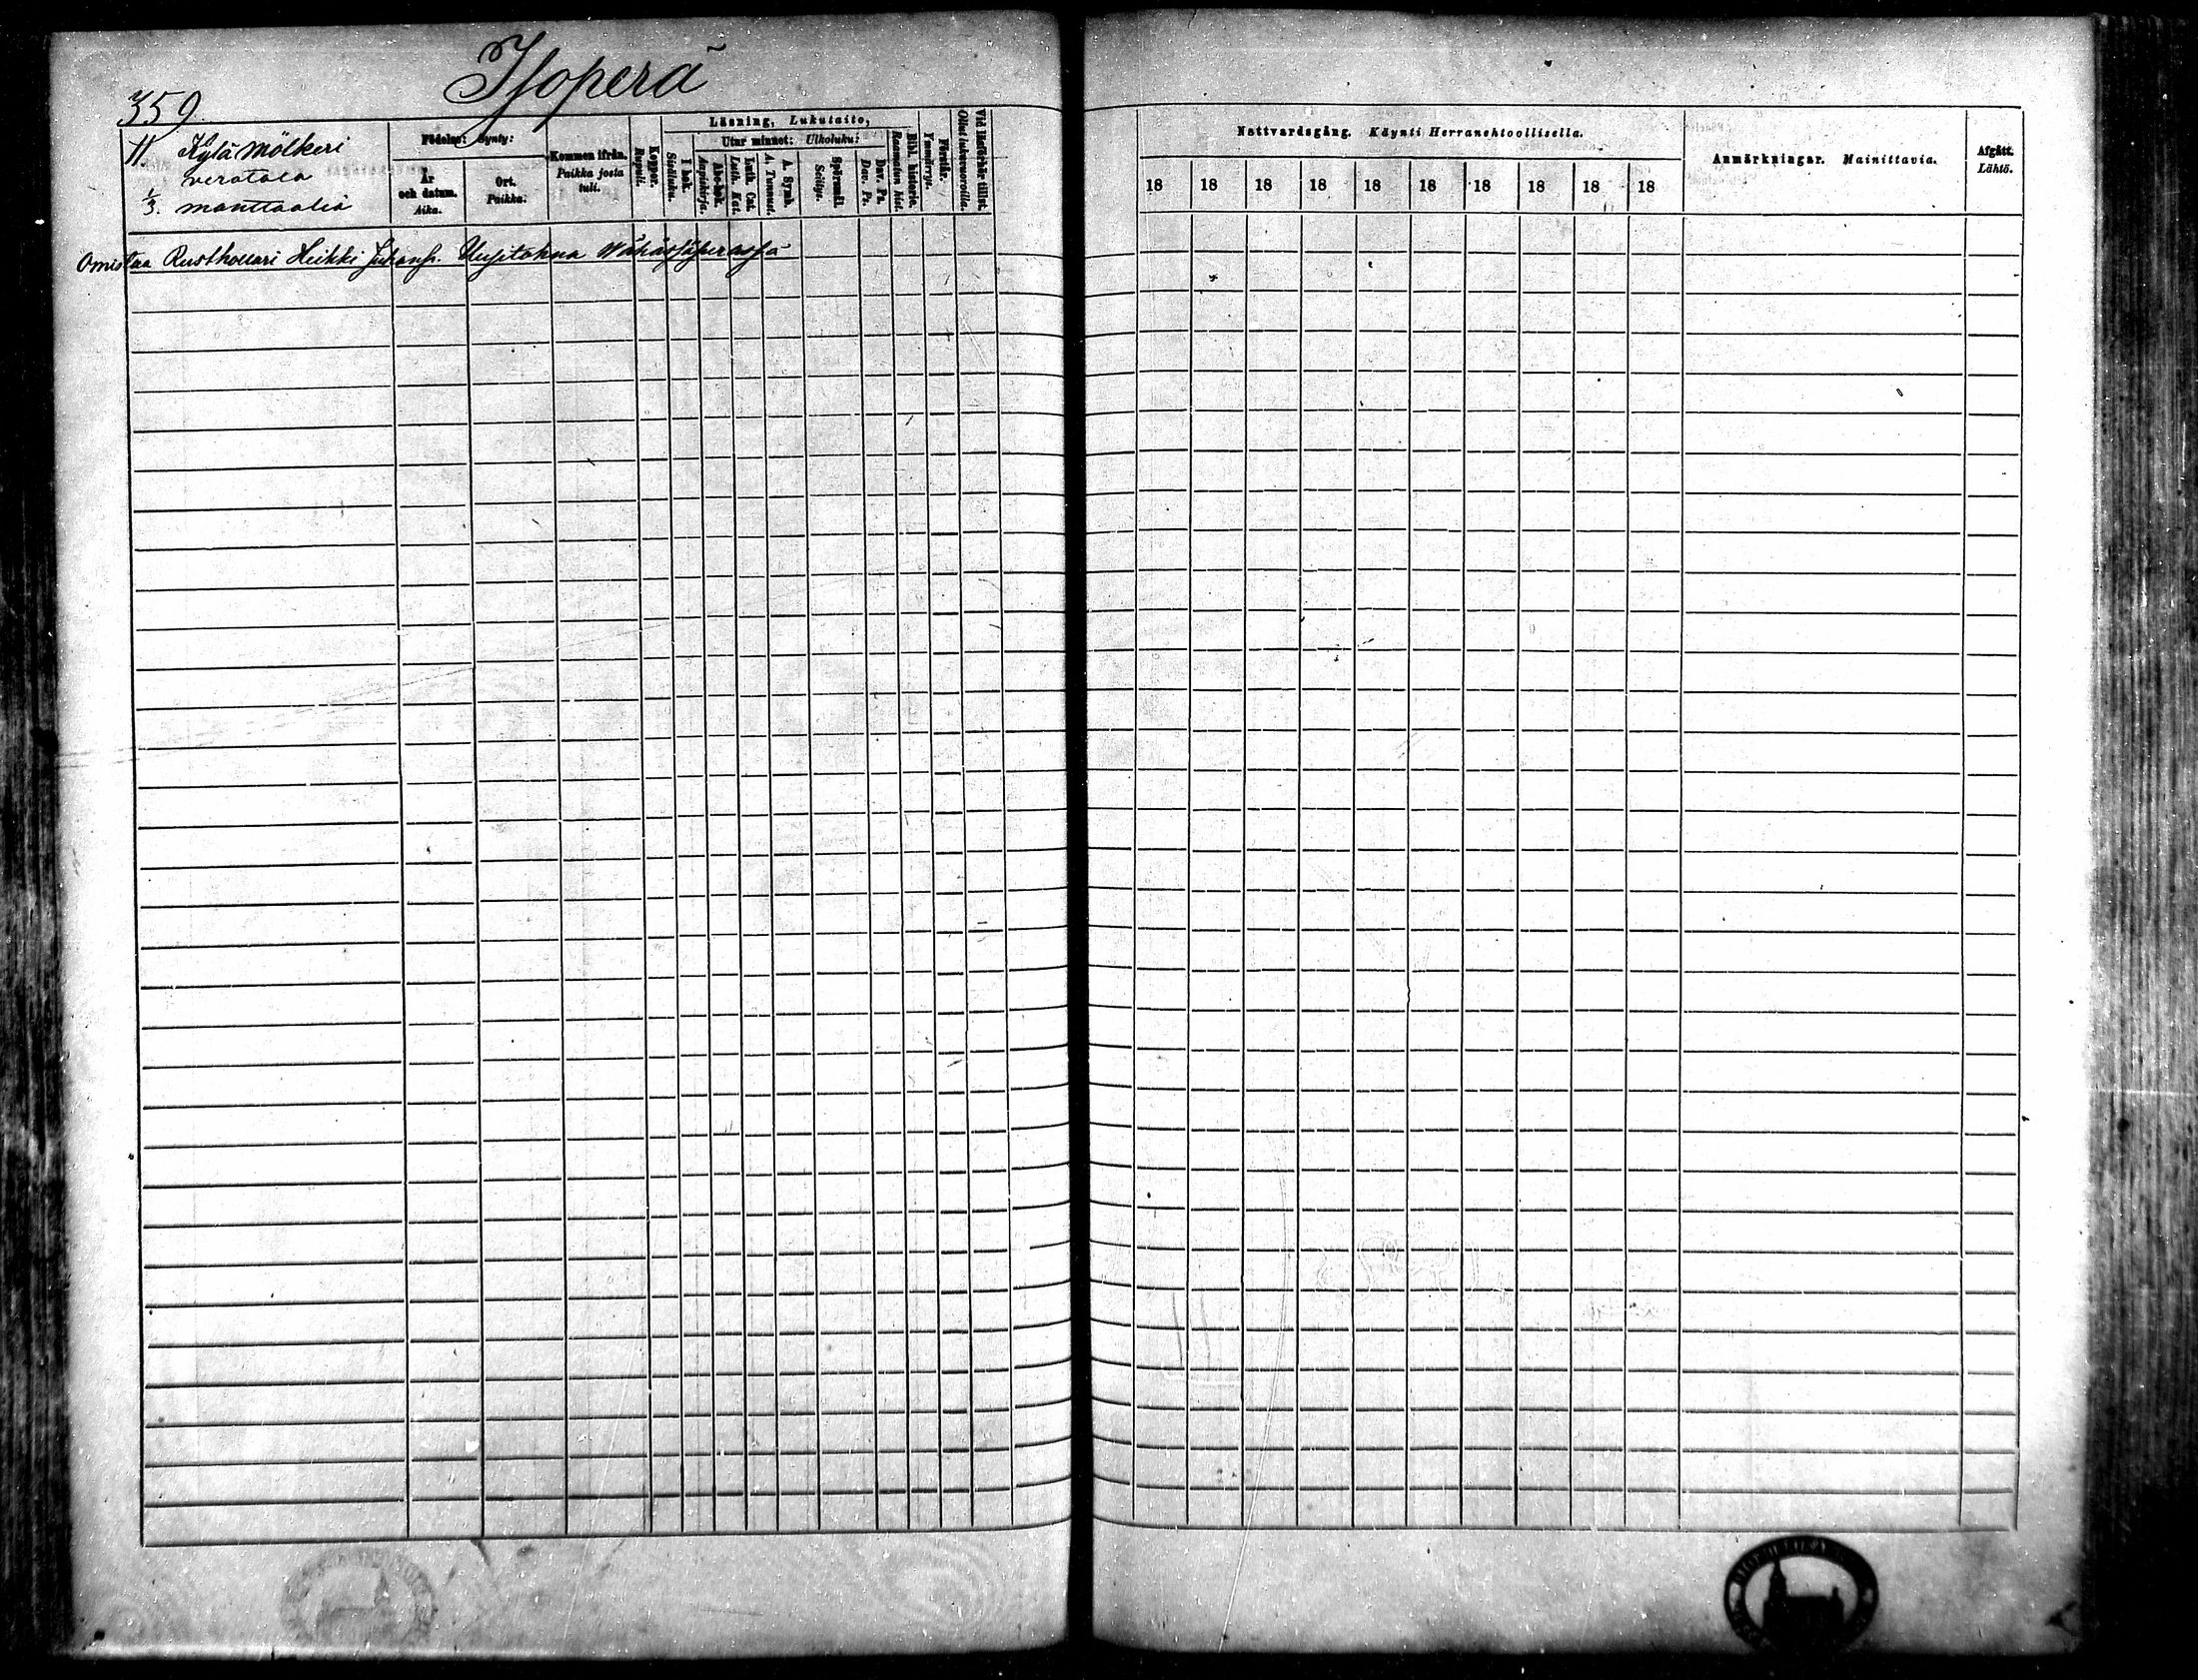 Isoperä
359.
11. Kylä Mölkeri
verotalo
1/3. manttaalia
Födelse: Synty:
År och datum. Aika.
Ort. Paikka.
Kommen ifrån. Paikka josta tuli.
Koppor. Rupuli.
Läsning, Lukutaito,
Sisäluku.
I bok.
Utur minnet: Ulkoluku:
Aapiskirja. Abc-bok.
Luth. Kat. Luth. Cat.
A. Tunnust. A. Symb.
Selitys. Spörsmål.
Dav. Ps. Dav. Ps.
Raamatun hist. Bibl. historie.
Ymmärrys. Förstår.
Ollut lukuvuoroilla. Vid läsförhör tillst.
Omistaa Rusthollari Heikki Juhanp. Uusitalma Wähässäperässä
Nattvardsgång. Käynti Herranehtoollisella.
18 18 18 18 18 18 18 18 18 18
Anmärkningar. Mainittavia.
Afgått. Lähtö.